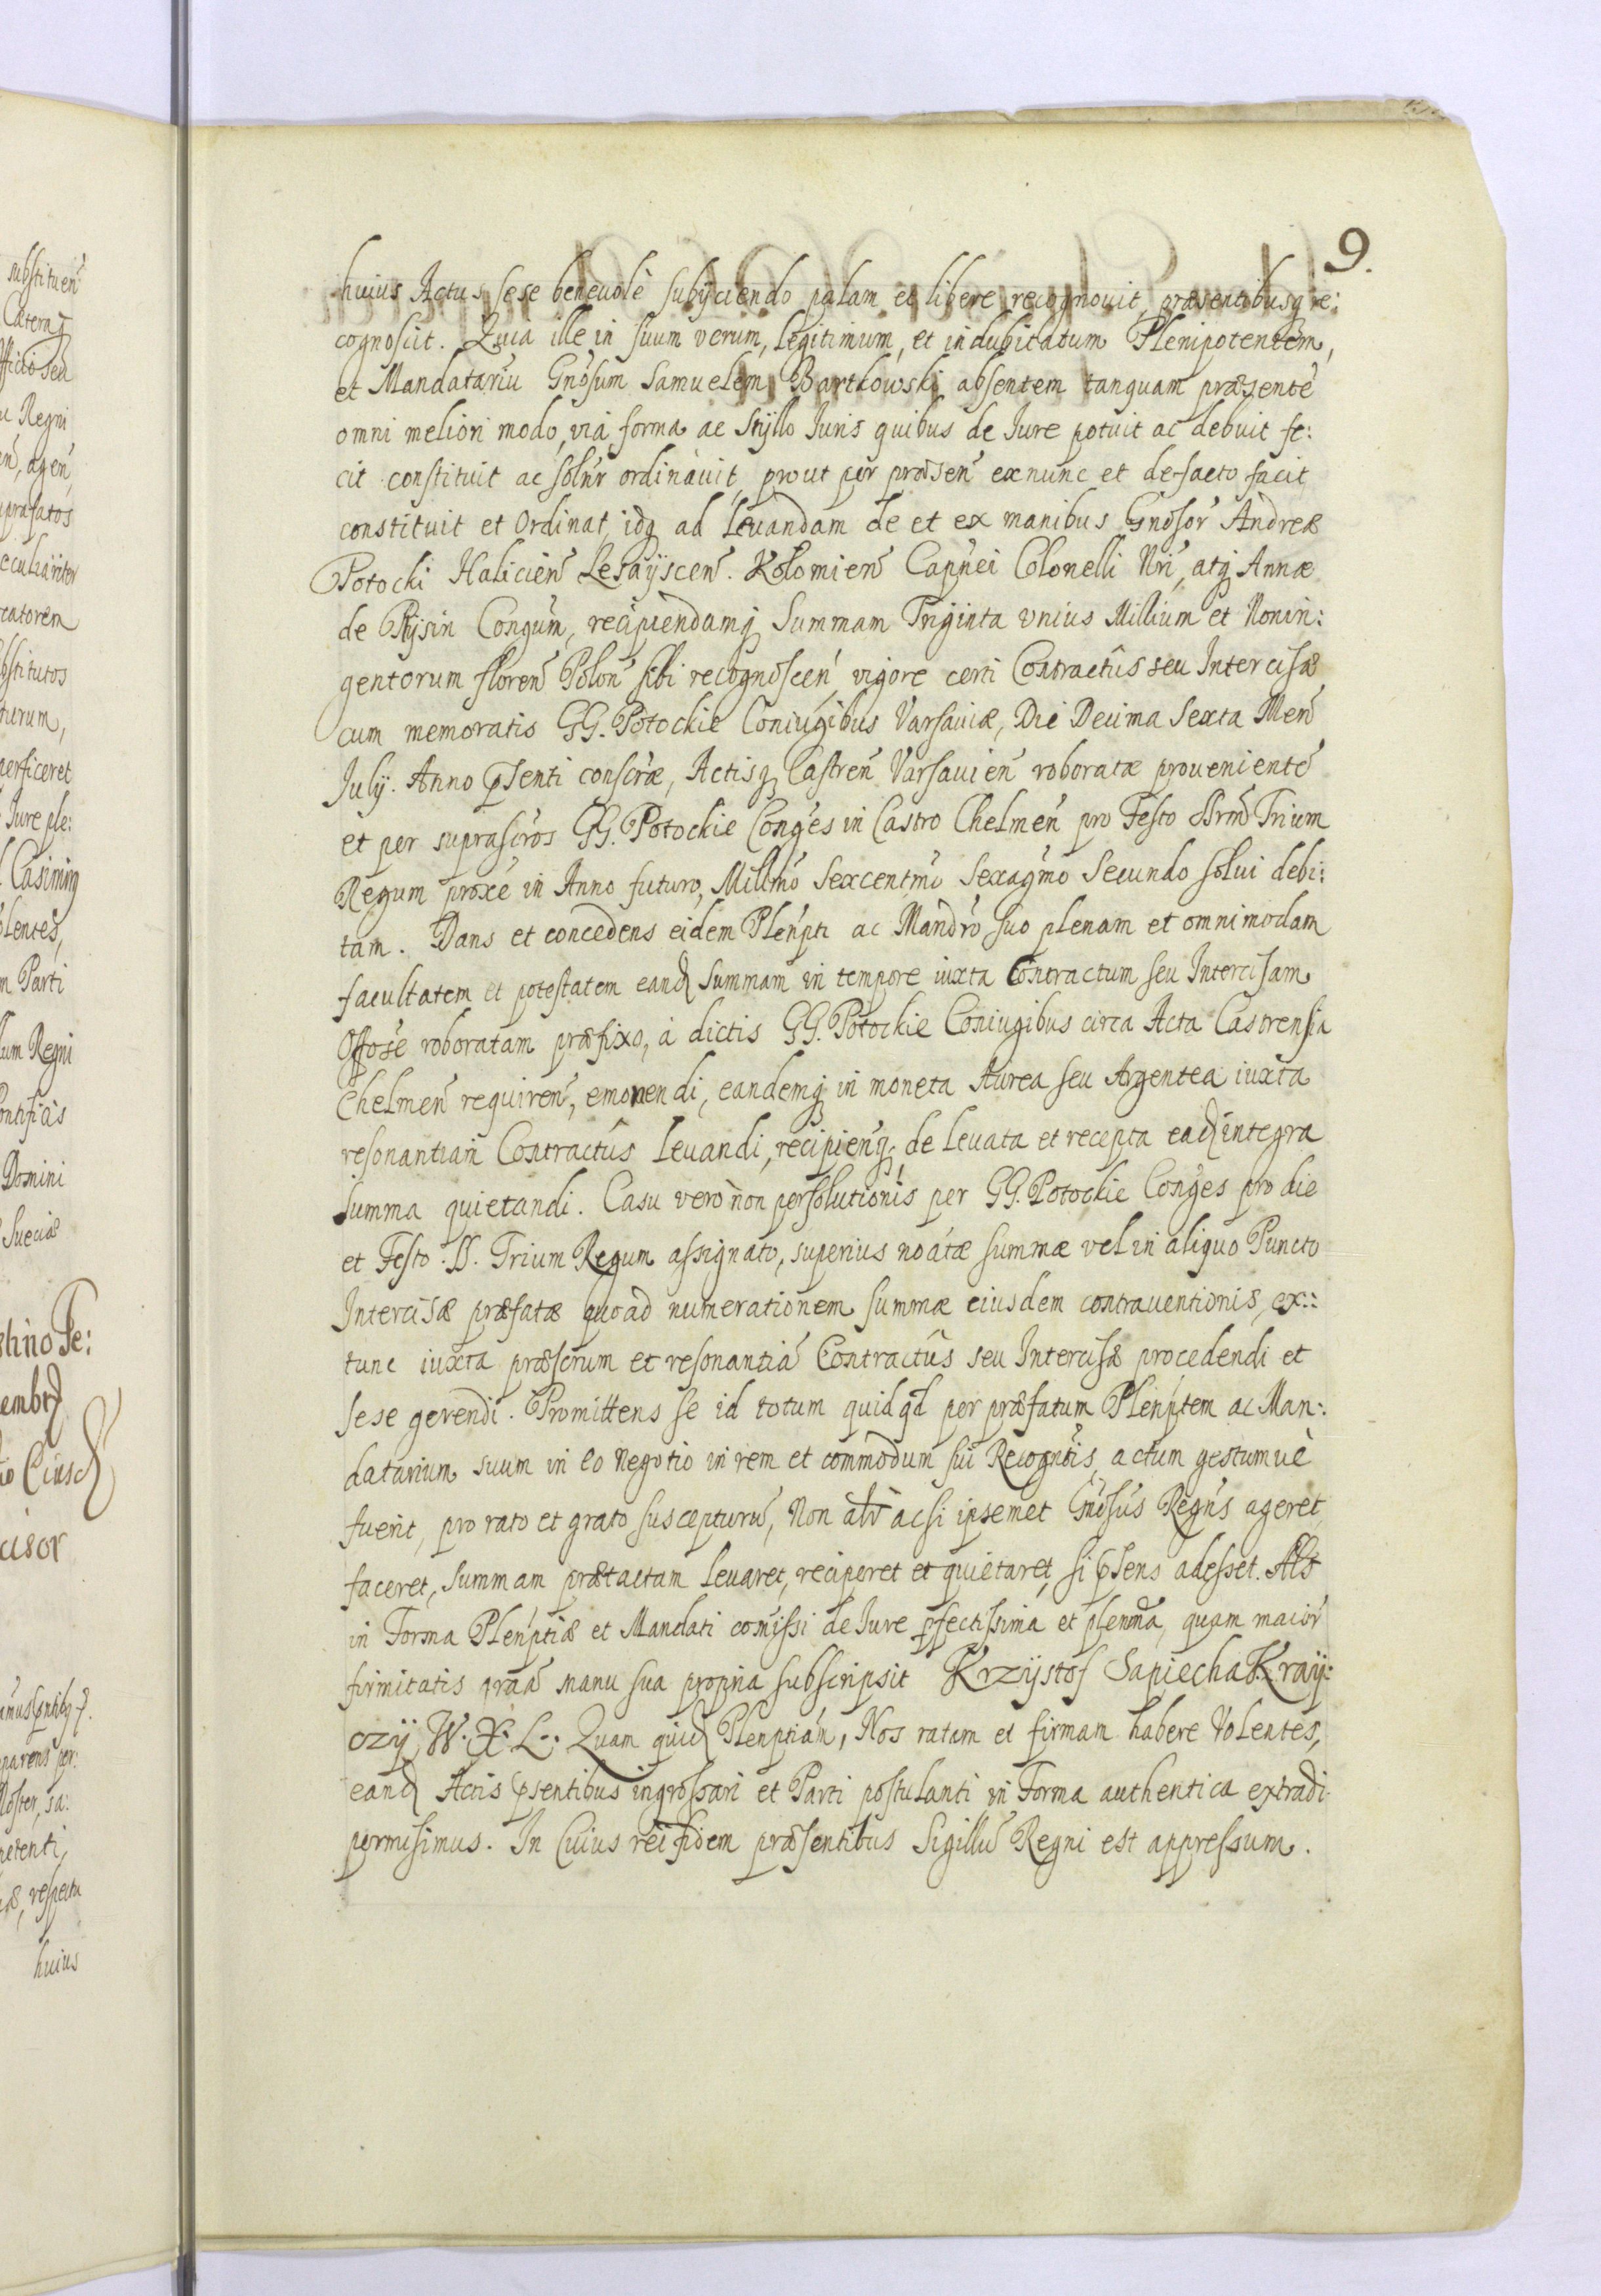 9.
huius Actus sese beneuolè subÿciendo palam et libere recognouit, præsentibusq́ re:
cognoscit. Quia ille in suum verum, legitimum, et indubitatum Plenipotentem,
et Mandatariū Gnõsum Samuelem Bartkowski absentem tanquam præsentẽ
omni meliori modo, via forma ac Stÿllo Iuris quibus de Iure potuit ac debuit fe:
cit constituit ac solñr ordinauit, prout per præsen̄ exnunc et de-facto facit
constituit et Ordinat, idq́ ad leuandam de et ex manibus Gnõsor̃ Andreæ
Potocki Halicien̄ Lesaÿscen̄. Kolomien̄ Capñei Colonelli Nrĩ, atq́ Annæ
de Rÿsin Congũm, recipiendamq́ Summam Triginta vnius Millium et Nonin:
gentorum floren̄ Polon̄ sibi recognoscen̄ vigore certi Contractûs seu Intercisæ
cum memoratis GG. Potockie Coniugibus Varsauiæ, Die Decima Sexta Men̄
Julÿ. Anno p̃senti conscr̃æ, Actisq́ Castren̄ Varsauien̄ roboratæ prouenientẽ
et per suprascr̃os GG. Potockie Conges̃ in Castro Chelmen̄ pro Festo SSrm̃ Trium
Regum proxẽ in Anno futuro, Millmõ Sexcentmõ Sexagmõ Secundo solui debi:
tam. Dans et concedens eidem Pleñpti ac Mandr̃o suo plenam et omnimodam
facultatem et potestatem eand̃ Summam in tempore iuxta Contractum seu Intercisam
Offosẽ roboratam præfixo, à dictis GG. Potockie Coniugibus circa Acta Castrensia
Chelmen̄ requiren̄, emonendi, eandemq́ in moneta Aurea seu Argentea iuxta
resonantiam Contractûs leuandi, recipienq́; de leuata et recepta ead̃ integra
Summa quietandi. Casu verò non persolutionis per GG. Potockie Conges̃ pro die
et Festo SS. Trium Regum assignato, superius noãtæ summæ vel in aliquo Puncto
Intercisæ præfatæ quoad numerationem summæ eiusdem contrauentionis, ex::
tunc iuxta præscrũm et resonantiã Contractûs seu Intercisæ procedendi et
sese gerendi. Promittens se id totum quidq̃d per præfatum Pleñptem ac Man:
datarium suum in eo negotio in rem et commodum sui Recogñtis, actum gestumuè
fuerit, pro rato et grato suscepturũ, Non alr̃ acsi ipsemet Gnõsus Regñs ageret
faceret, summam prætactam leuaret, reciperet et quietaret, si p̃sens adesset. Alt̃
in Forma Pleñptiæ et Mandati com̃issi de Iure p̃fectissima et plenm̃a, quam maior̃
firmitatis gr̃aã manu sua propria subscripsit Krzÿstof Sapiecha Kraÿ:
czÿ W. X. L.: Quam quid̃ Pleñptiam, Nos ratam et firmam habere Volentes,
eand̃ Actis p̃sentibus ingrossari et Parti postulanti in Forma authentica extradi
permisimus. In Cuius rei fidem præsentibus Sigillũ Regni est appressum.
substituen̄
Cæteraq́
Regni
agen̄
Iure ple:
Casimirq́
Parti
Regni
Domini
Sueciæ
respectu
huius